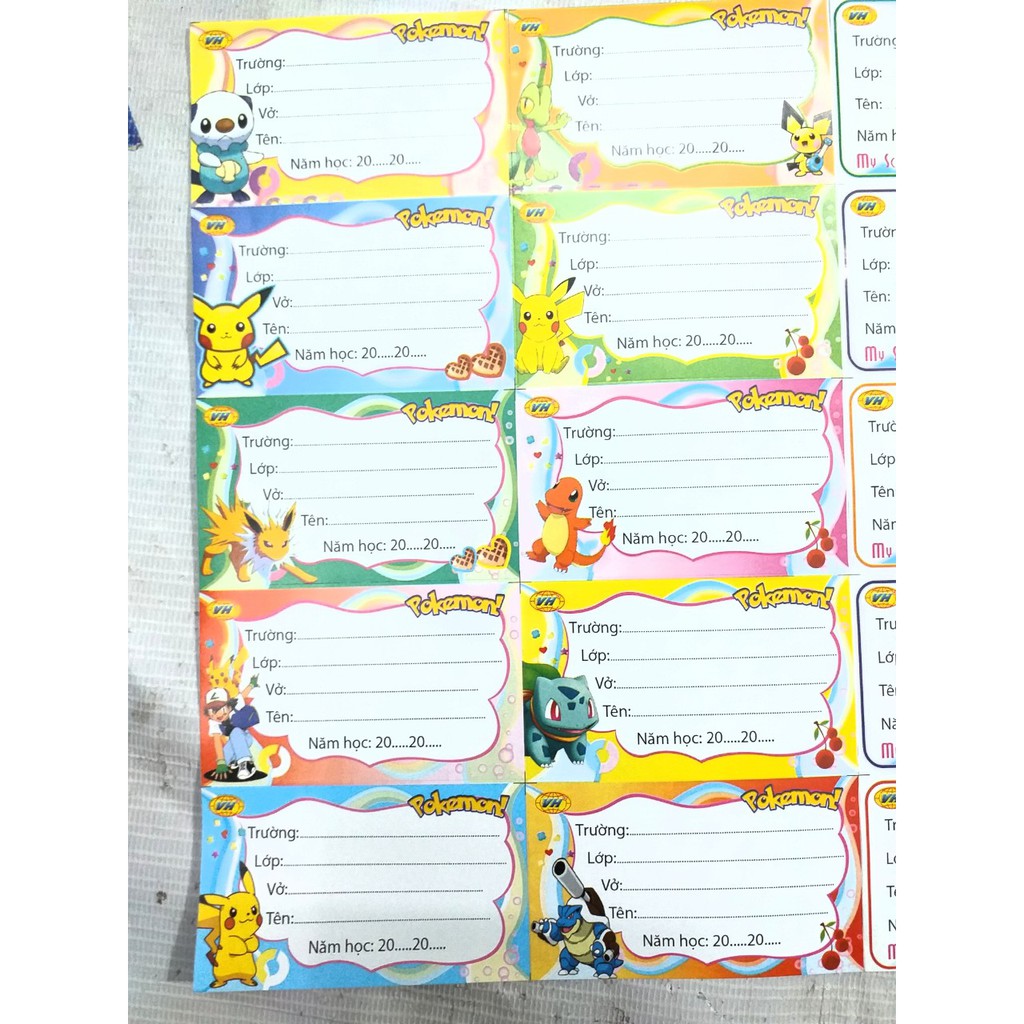 VH
Pokemon!
Trường:
Lớp:
Vở:
Tên:
Năm học: 20.....20.....
VH
Pokemon!
Trường:
Lớp:
Vở:
Tên:
Năm học: 20.....20.....
VH
Trường
Lớp:
Tên:
Năm h
My Sc
VH
Pokemon!
Trường:
Lớp:
Vở:
Tên:
Năm học: 20.....20.....
VH
Pokemon!
Trường:
Lớp:
Vở:
Tên:
Năm học: 20.....20.....
VH
Trườn
Lớp:
Tên:
Năm
My S
VH
Pokemon!
Trường:
Lớp:
Vở:
Tên:
Năm học: 20.....20.....
VH
Pokemon!
Trường:
Lớp:
Vở:
Tên:
Năm học: 20.....20.....
VH
Trườ
Lớp
Tên
Năm
My
VH
Pokemon!
Trường:
Lớp:
Vở:
Tên:
Năm học: 20.....20.....
VH
Pokemon!
Trường:
Lớp:
Vở:
Tên:
Năm học: 20.....20.....
VH
Trư
Lớp
Tê
Nă
VH
Pokemon!
Trường:
Lớp:
Vở:
Tên:
Năm học: 20.....20.....
VH
Pokemon!
Trường:
Lớp:
Vở:
Tên:
Năm học: 20.....20.....
VH
Tr